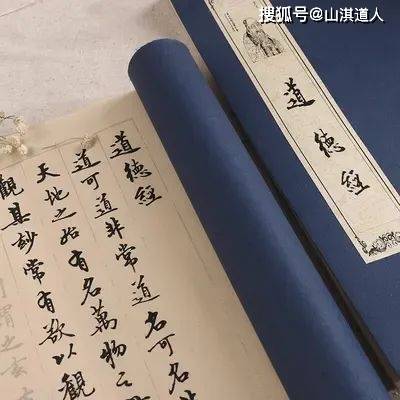 搜狐号@山淇道人
道德經
道德經
道可道非常道名可名
天地之始有名萬物之
觀其妙常有欲以觀
謂之玄